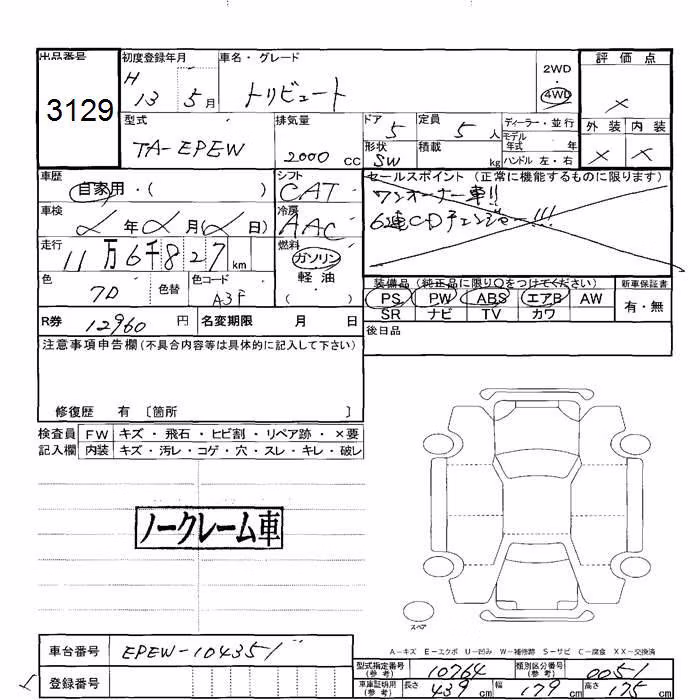 出品番号
3129
初度登録年月
H 13 5月
車名・グレード
トリビュート
2WD
4WD
評価点
×
外装 内装
× ×
型式
TA-EPEW
排気量
2000 cc
ドア 5
定員 5 人
形状 SW
積載 kg
ディーラー・並行
モデル年式 年
ハンドル 左・右
車歴
自家用・( )
シフト
CAT
セールスポイント (正常に機能するものに限ります)
ワンオーナー車!!
6連CDチェンジャー!!!
車検
年 月( 日)
冷房
AAC
走行
11万6千827km
燃料
ガソリン
軽・油
( )
色
色替
色コード
A3F
装備品 (純正品に限り○をつけてください)
PS PW ABS エアB AW
SR ナビ TV カワ
新車保証書
有・無
R券 12960 円
名変期限 月 日
後日品
注意事項申告欄(不具合内容等は具体的に記入して下さい)
修復歴 有 〔箇所 〕
検査員記入欄
FW キズ・飛石・ヒビ割・リペア跡・×要
内装 キズ・汚レ・コゲ・穴・スレ・キレ・破レ
ノークレーム車
スペア
A-キズ E-エクボ U-凹み W-補修跡 S-サビ C-腐食 XX-交換済
車台番号 EPEW-104351
登録番号
型式指定番号(参考) 10764
類別区分番号(参考) 0051
車庫証明用(参考) 長さ 439 cm 幅 179 cm 高さ 75 cm